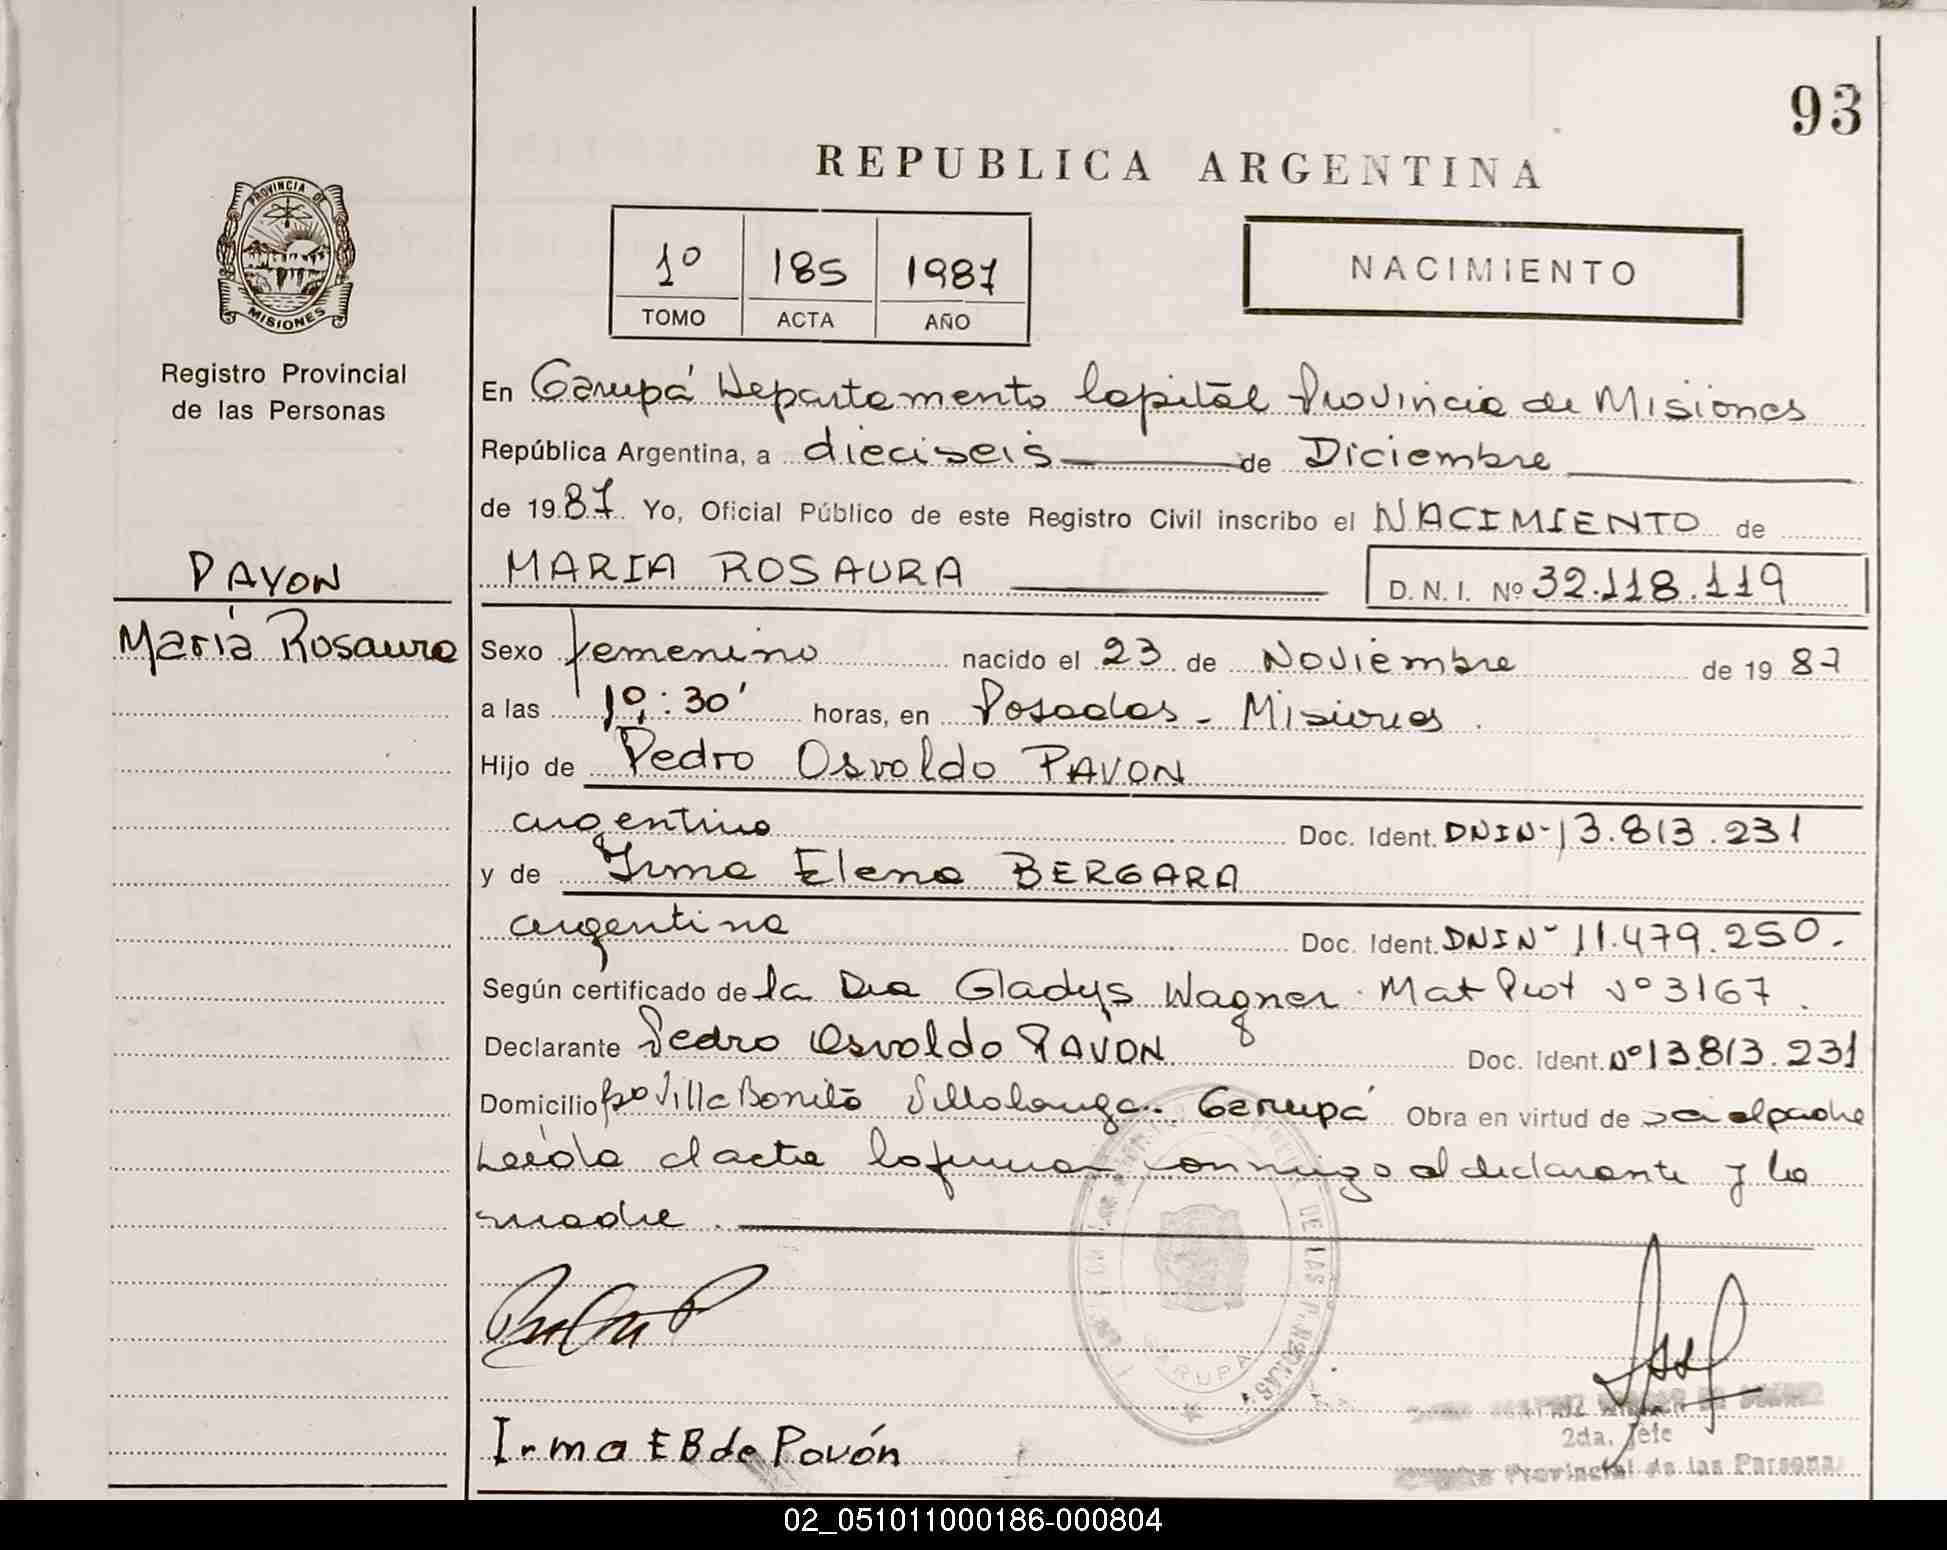 93
REPUBLICA ARGENTINA
PROVINCIA DE
MISIONES
Registro Provincial
de las Personas
1º 185 1987
TOMO ACTA AÑO
NACIMIENTO
En Garupá Departamento Capital Provincia de Misiones
República Argentina, a dieciseis de Diciembre
de 1987 Yo, Oficial Público de este Registro Civil inscribo el NACIMIENTO de
PAVON
María Rosaura
MARIA ROSAURA D. N. I. Nº 32.118.119
Sexo femenino nacido el 23 de Noviembre de 1987
a las :30' horas, en Posadas - Misiones.
Hijo de Pedro Osvaldo PAVON
argentino Doc. Ident. DNI Nº 13.813.231
y de Irma Elena BERGARA
argentina Doc. Ident. DNI Nº 11.479.250.
Según certificado de la Dra Gladys Wagner. Mat Prof Nº 3167.
Declarante Pedro Osvaldo PAVON Doc. Ident. Nº 13.813.231
Domicilio Bº Villa Bonita Garupá Obra en virtud de el padre
Leída el acta la firman conmigo el declarante y la
madre.
GARUPA
DE LAS PERSONAS
Irma E B de Pavón
2da. Jefe
Provincial de las Personas
02_051011000186-000804